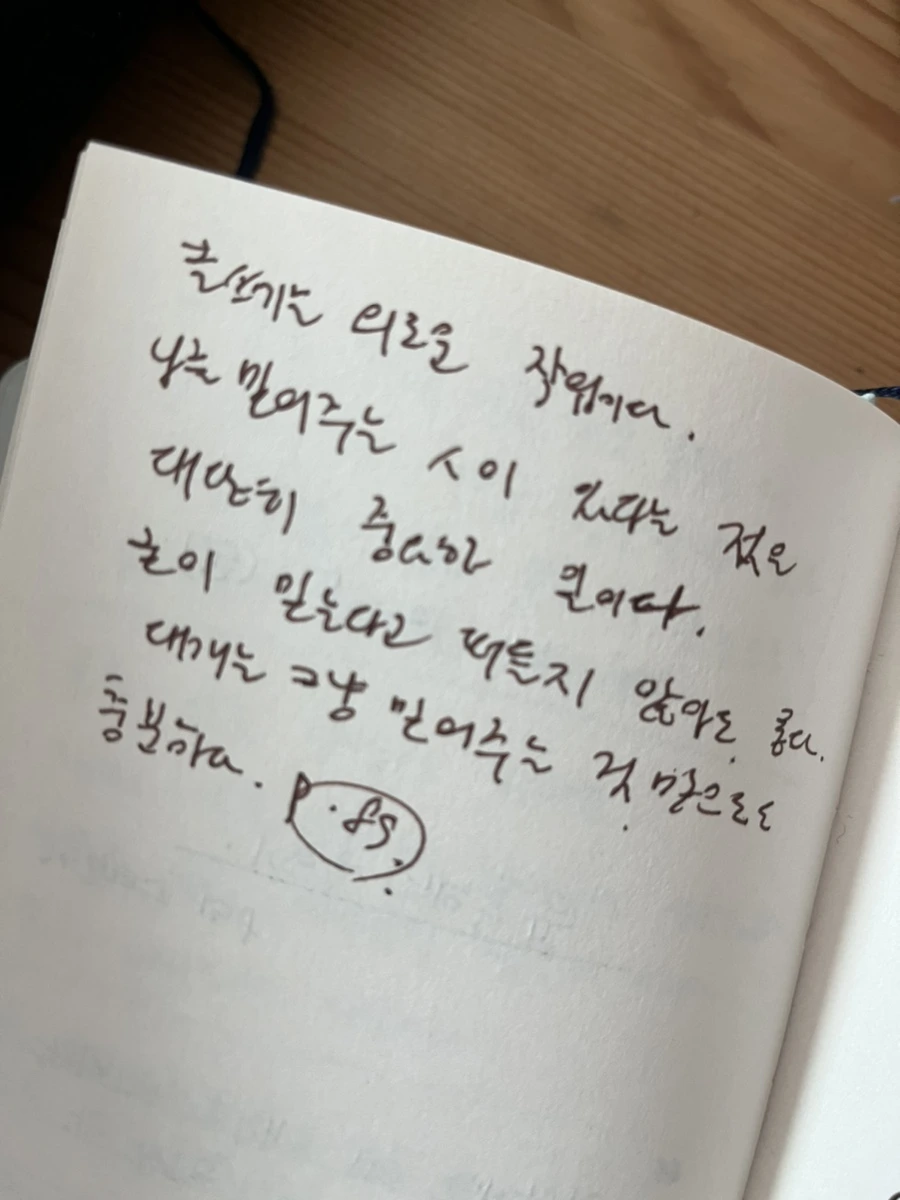 글쓰기는 외로운 작업이다.
나를 믿어주는 사람이 있다는 것은
대단히 중요한 일이다.
굳이 믿는다고 떠들지 않아도 좋다.
대개는 그냥 믿어주는 것만으로도
충분하다. P.89.